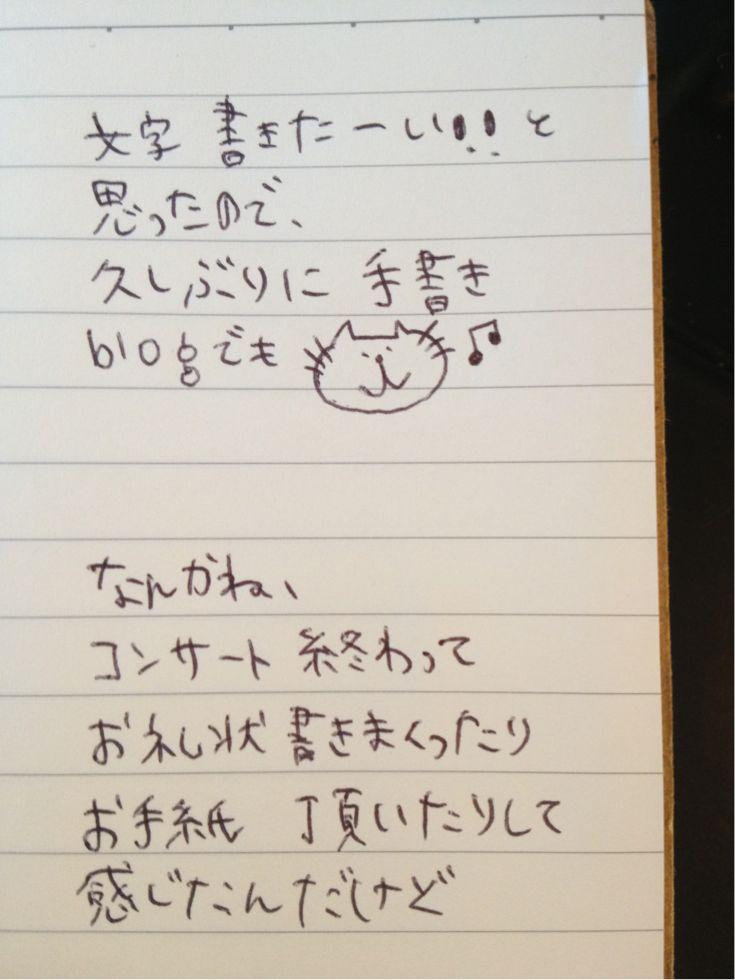 文字 書きたーい!! と
思ったので、
久しぶりに 手書き
blogでも ♫
なんかね、
コンサート 終わって
お礼状 書きまくったり
お手紙 頂いたりして
感じたんだけど